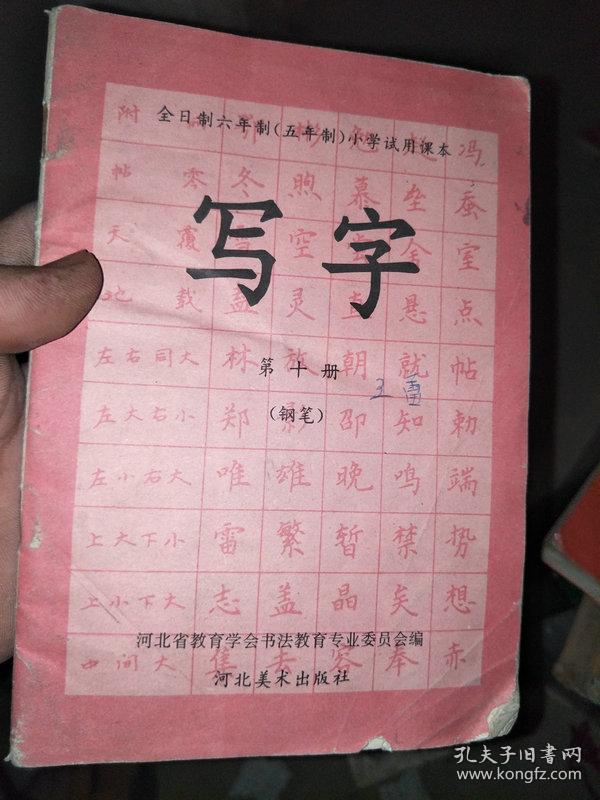 全日制六年制(五年制)小学试用课本
写字
第十册
(钢笔)
河北省教育学会书法教育专业委员会编
河北美术出版社
冯
帖 零 冬 煦 慕 垒 蚕
天 覆 空 舍 室
地 载 盖 灵 悬 点
左右同大 林 放 朝 就 帖
左大右小 郑 影 邵 知 勅
左小右大 唯 雄 晚 鸣 端
上大下小 雷 繁 暂 禁 势
上小下大 志 盖 晶 矣 想
中间大 集 去 容 奉 赤
孔夫子旧书网
www.kongfz.com